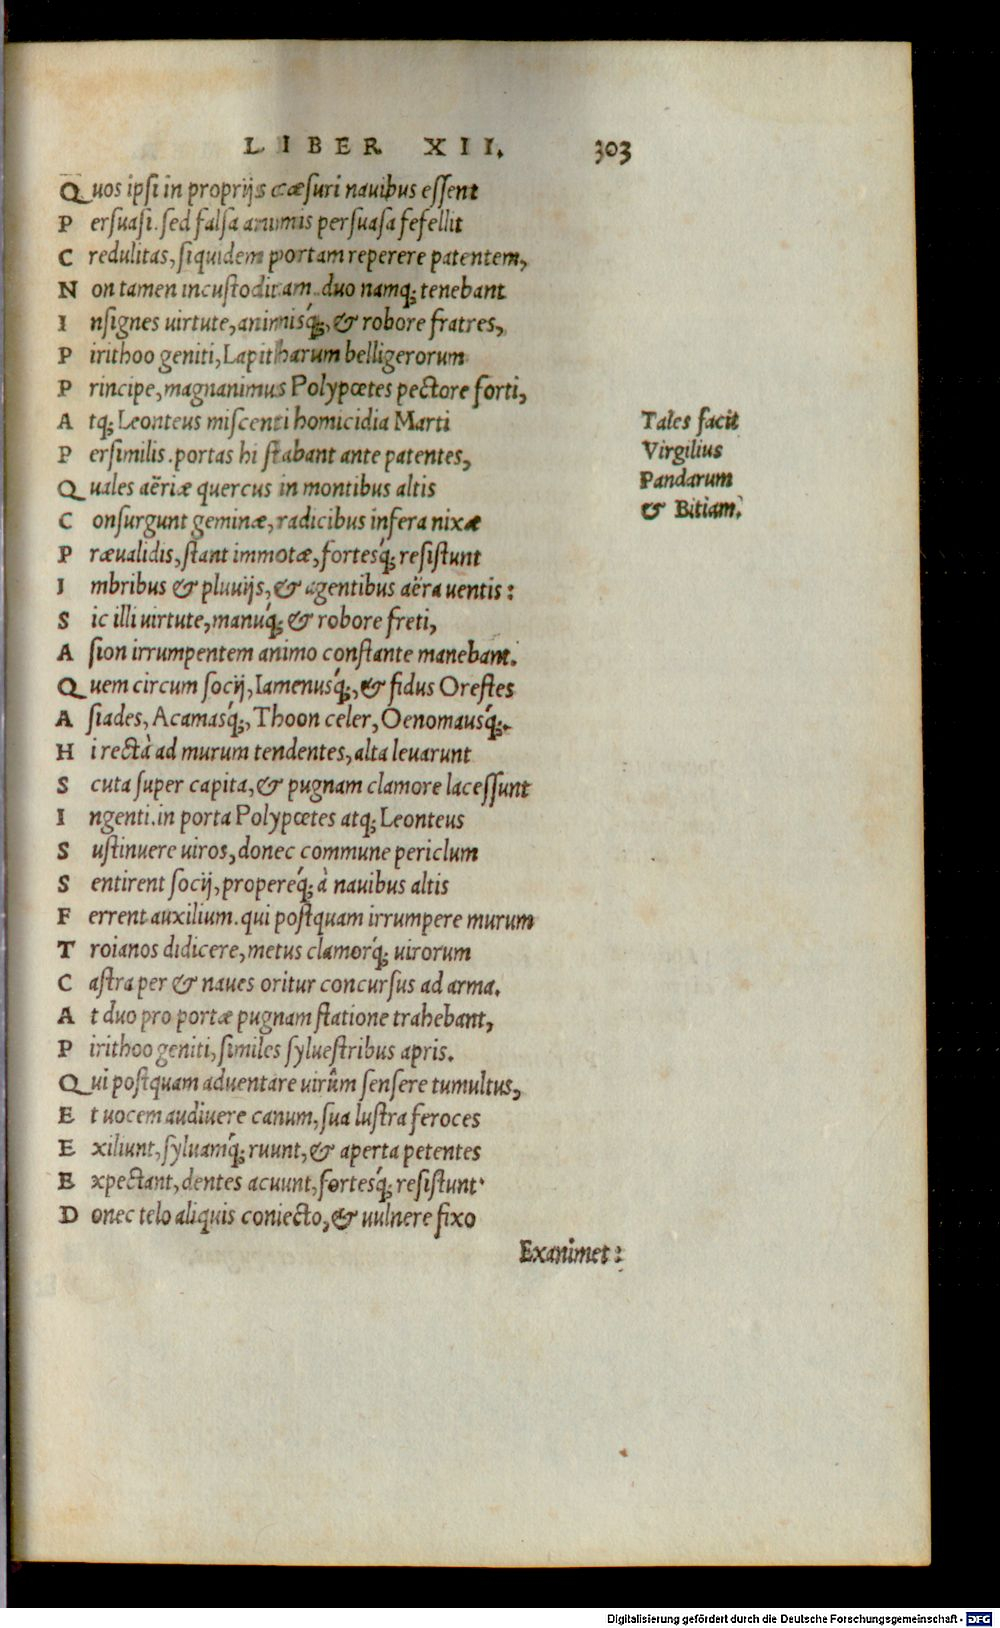 LIBER XII. 303
Quos ipsi in proprijs cæsuri nauibus essent
Persuasi. sed falsa animis persuasa fefellit
Credulitas, siquidem portam reperere patentem,
Non tamen incustoditam. duo namq; tenebant
Insignes uirtute, animisq́;, & robore fratres,
Pirithoo geniti, Lapitharum belligerorum
Principe, magnanimus Polypœtes pectore forti,
Atq; Leonteus miscenti homicidia Marti
Persimilis. portas hi stabant ante patentes,
Quales aëriæ quercus in montibus altis
Consurgunt geminæ, radicibus infera nixæ
Præualidis, stant immotæ, fortesq́; resistunt
Imbribus & pluuijs, & agentibus aëra uentis:
Sic illi uirtute, manuq́; & robore freti,
Asion irrumpentem animo constante manebant.
Quem circum socij, Iamenusq́;, & fidus Orestes
Asiades, Acamasq́;, Thoon celer, Oenomausq́;.
Hi rectà ad murum tendentes, alta leuarunt
Scuta super capita, & pugnam clamore lacessunt
Ingenti. in porta Polypœtes atq; Leonteus
Sustinuere uiros, donec commune periclum
Sentirent socij, propereq́; à nauibus altis
Ferrent auxilium. qui postquam irrumpere murum
Troianos didicere, metus clamorq́; uirorum
Castra per & naues oritur concursus ad arma.
At duo pro portæ pugnam statione trahebant,
Pirithoo geniti, similes syluestribus apris.
Qui postquam aduentare uirûm sensere tumultus,
Et uocem audiuere canum, sua lustra feroces
Exiliunt, syluamq́; ruunt, & aperta petentes
Expectant, dentes acuunt, fortesq́; resistunt.
Donec telo aliquis coniecto, & uulnere fixo
Exanimet:
Tales facit
Virgilius
Pandarum
& Bitiam.
Digitalisierung gefördert durch die Deutsche Forschungsgemeinschaft - DFG